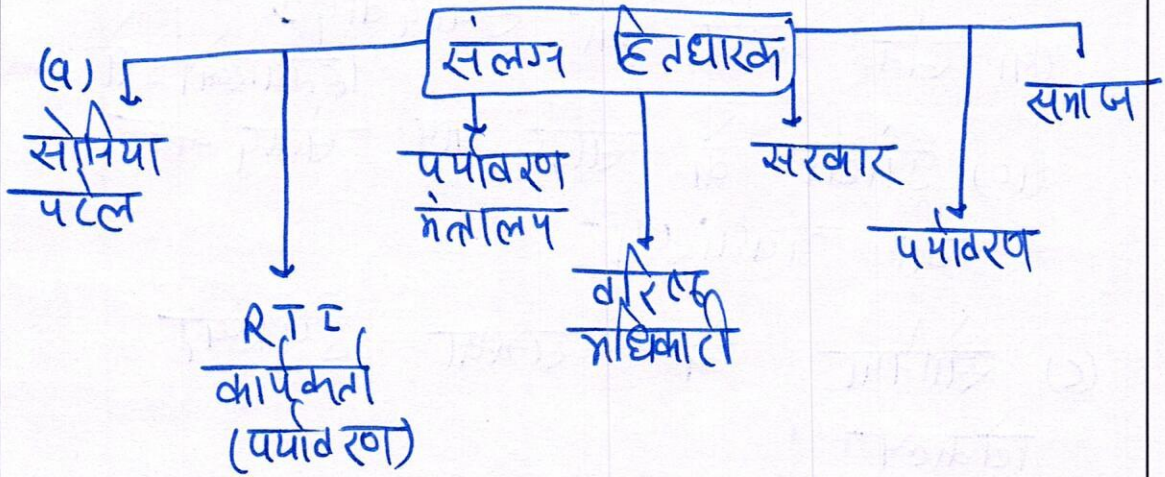 (a)
संलग्न हितधारक
सोनिया
पटेल
RTI
कार्यकर्ता
(पर्यावरण)
पर्यावरण
मंत्रालय
वरिष्ठ
अधिकारी
सरकार
पर्यावरण
समाज